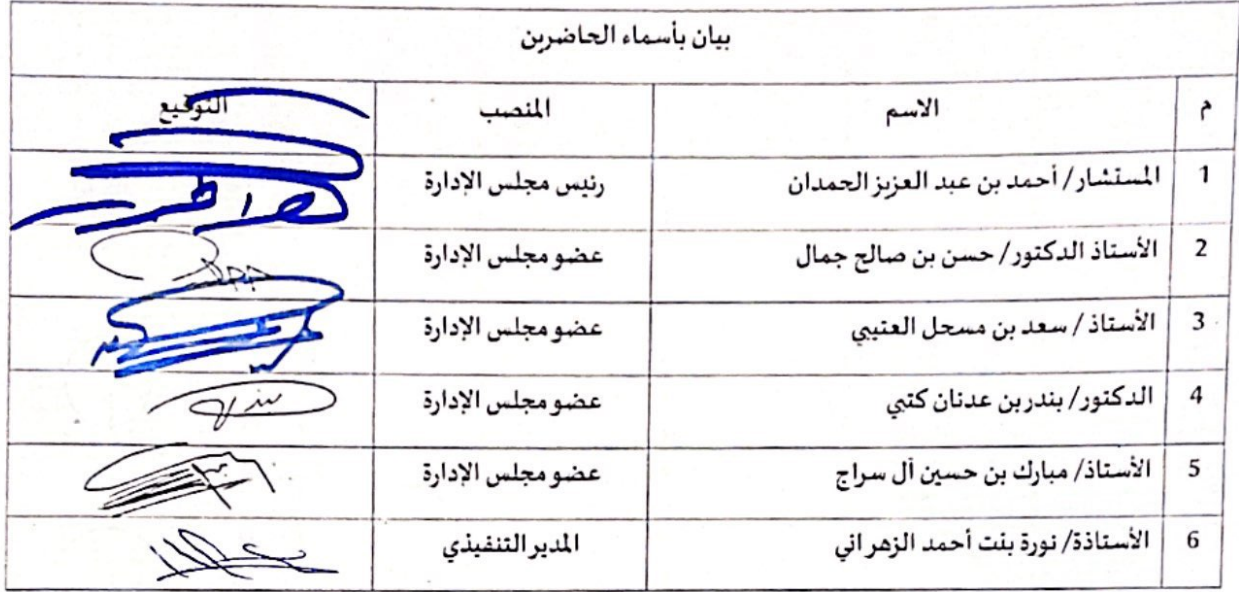 بيان بأسماء الحاضرين
م الاسم المنصب التوقيع
1 المستشار/ أحمد بن عبد العزيز الحمدان رئيس مجلس الإدارة
2 الأستاذ الدكتور/ حسن بن صالح جمال عضو مجلس الإدارة
3 الأستاذ / سعد بن مسحل العتيبي عضو مجلس الإدارة
4 الدكتور/ بندر بن عدنان كتبي عضو مجلس الإدارة
5 الأستاذ/ مبارك بن حسين آل سراج عضو مجلس الإدارة
6 الأستاذة/ نورة بنت أحمد الزهراني المدير التنفيذي